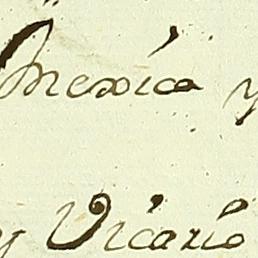 Mexica y
y Vicario